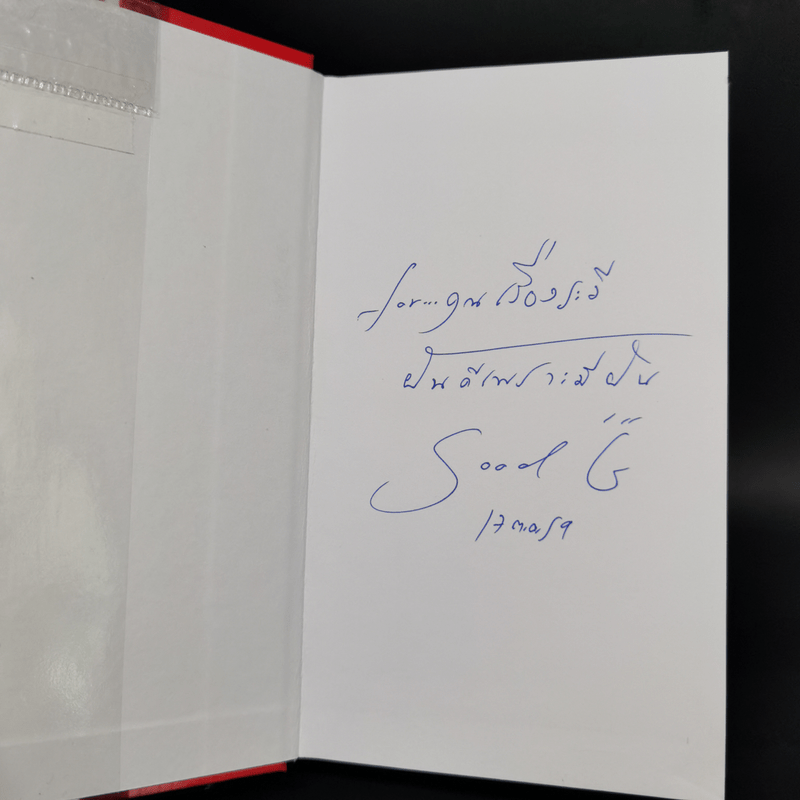 for... คุณเรืองระวี
ฝันดีเพราะมีฝัน
17 ต.ค. 59